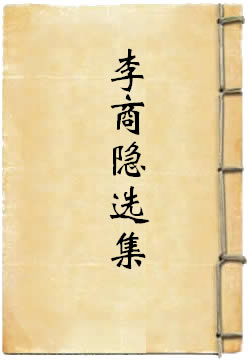 李商隐选集